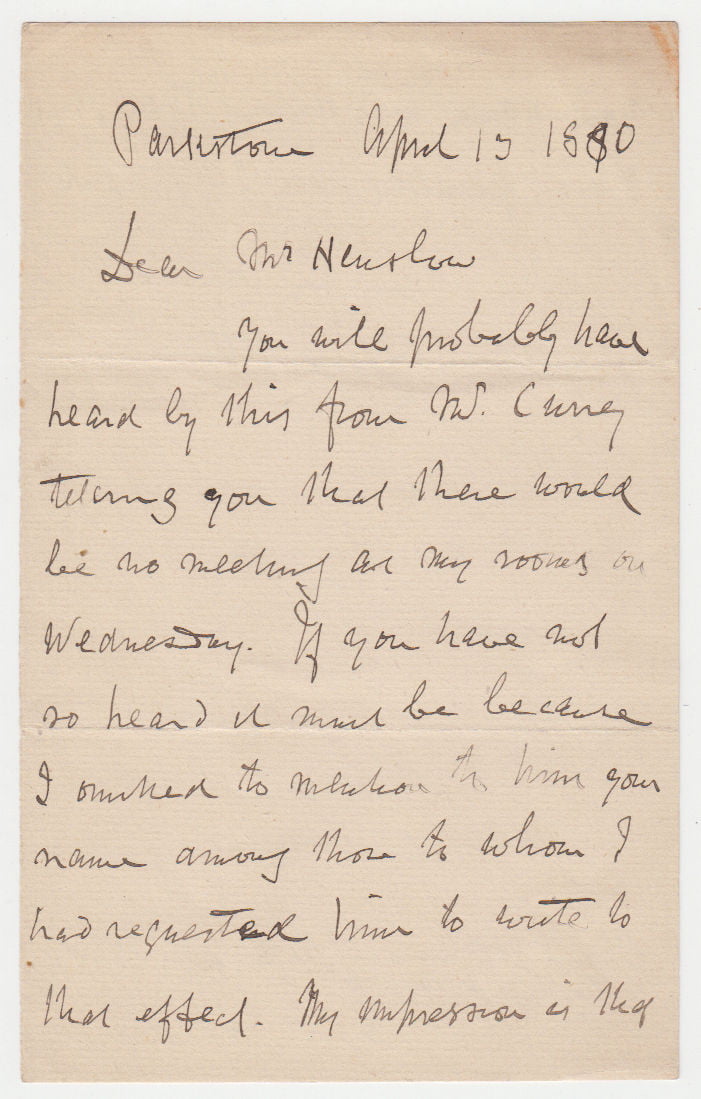 Parkstone April 13 1880
Dear Mr Henslow
You will probably have
heard by this from Mr. Currey
telling you that there would
be no meeting at my rooms on
Wednesday. If you have not
so heard it must be because
I omitted to mention to him your
name among those to whom I
had requested him to write to
that effect. My impression is that